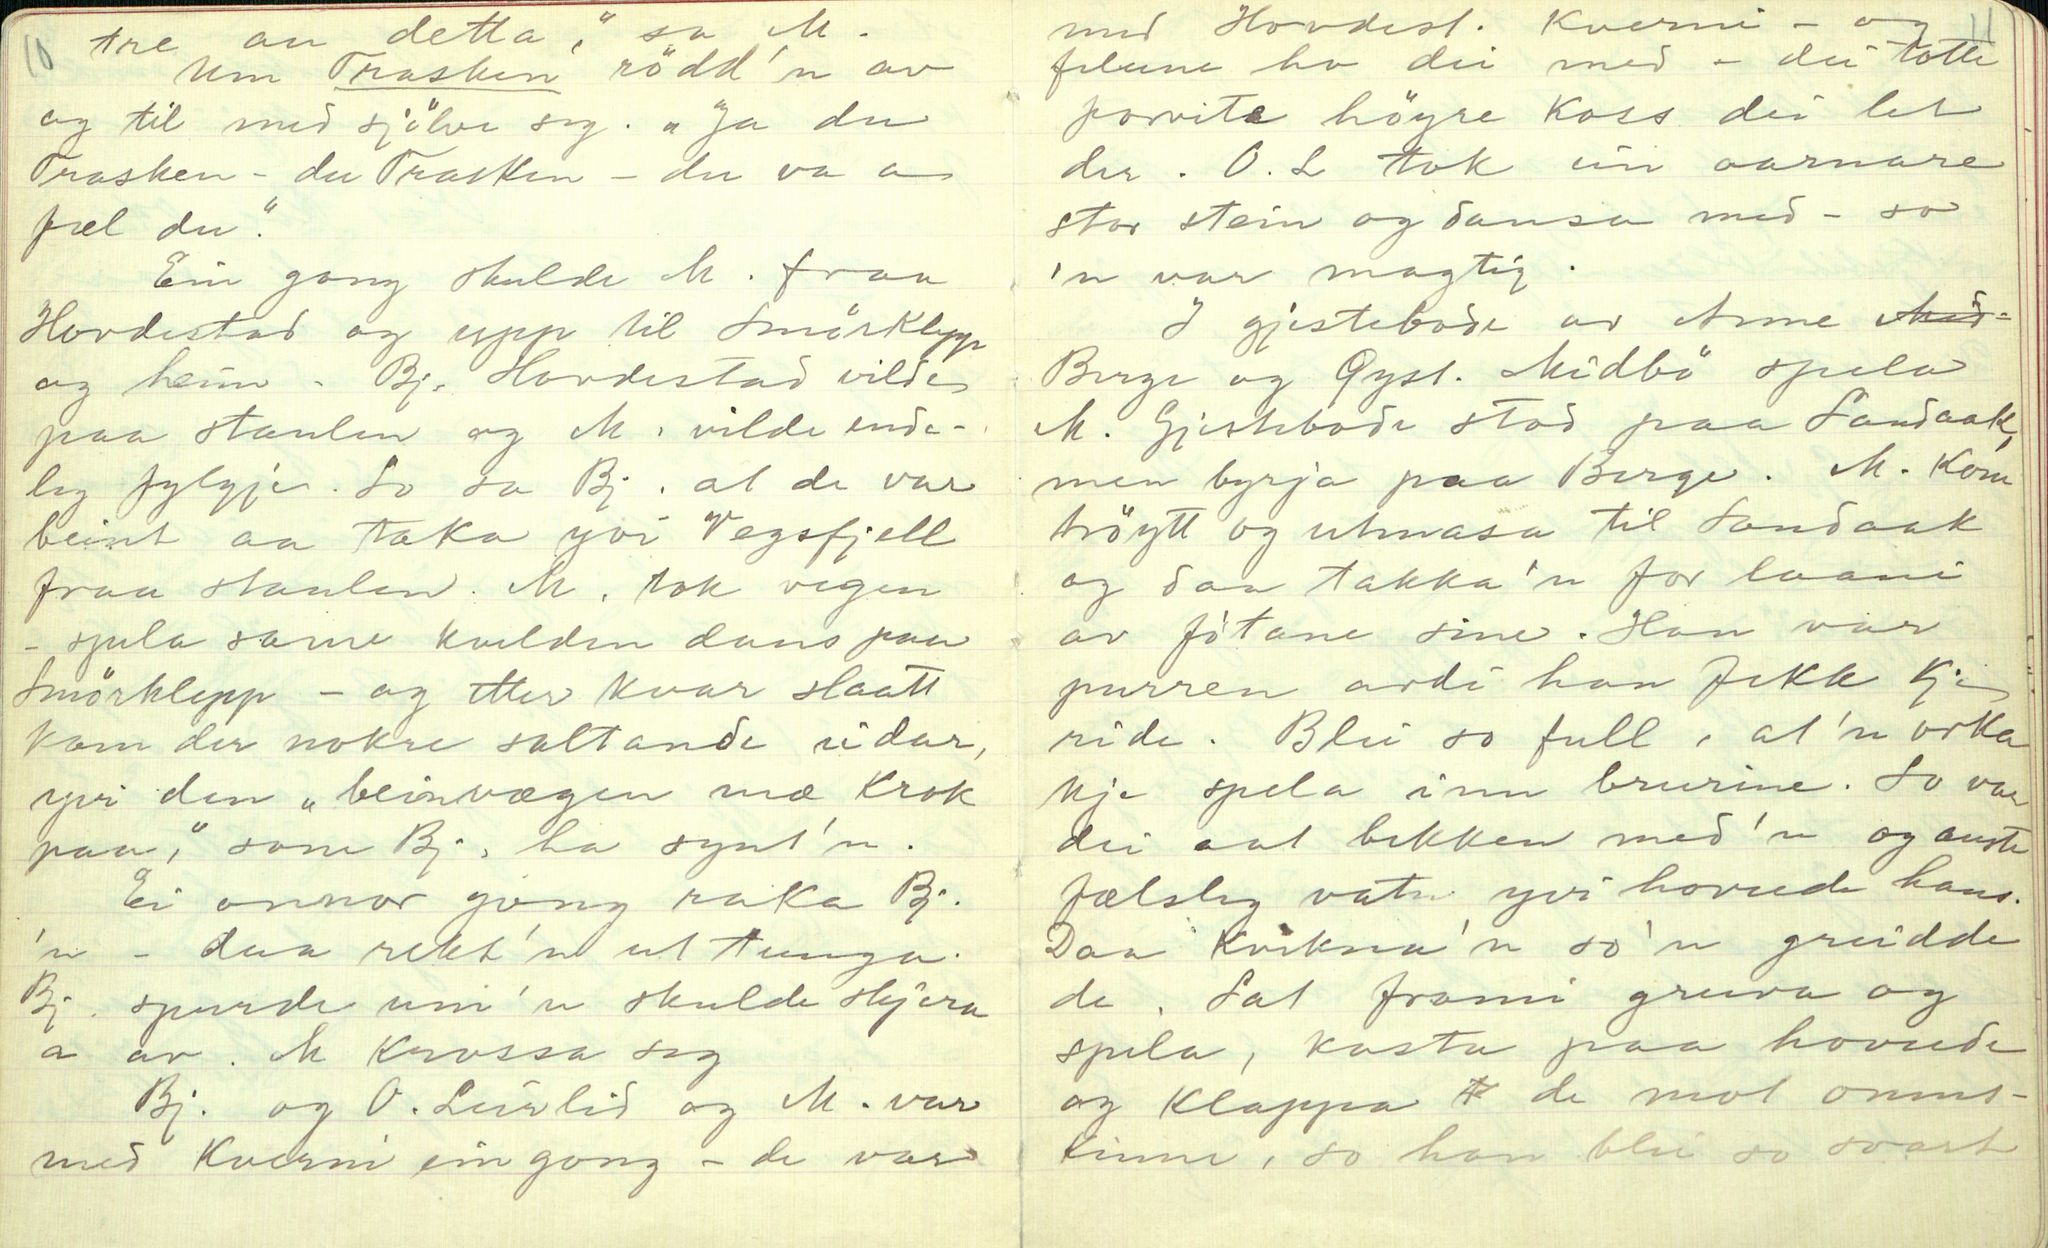 10
tre an detta," sa M.
Um Trasken rödd'n av
og til med sjölve seg. "Ja du
Trasken - du Trasken - du va a
fæl du".
Ein gong skulde M. fraa
Hovdestad og upp til Smörklepp
og heim. Bj. Hovdestad vilde
paa staulen og M. vilde ende-
leg fylgje. So sa Bj. at de var
beint aa taka yvi Vegsfjell
fraa staulen. M. tok vegen
- spela same kvelden dans paa
Smörklepp - og etter kvar slaatt
kom der nokre saltande eidar,
yvi den "beinvægen mæ krok
paa," som Bj. ha synt'n.
Ei onnor gong raka Bj.
'n - daa rekt'n ut tunga.
Bj. spurde um'n skulde skjera
a av. M krossa seg
Bj. og O. Leirlid og M. var
med Kverni ein gong - de var
11
med Hovdest. Kverni - og
felune ha dei med - dei totte
forvita höyre koss dei let
der. O. L tok ein aarnare
stor stein og dansa med - so
'n var magtig.
I gjestebode av Anne Mid-
Berge og Gysl. Midbö spela
M. Gjestebode stod paa Sandaak,
men byrja paa Berge. M. kom
tröytt og utmasa til Sandaak
og daa takka'n for laani
av fötane sine. Han var
purren avdi han fekk kje
ride. Blei so full, at'n orka
kje spela inn brurine. So var
dei aat bekken med'n og auste
fælsleg vatn yvi hovude hans.
Daa kvikna'n so'n greidde
de. Sat frami gruva og
spela, kasta paa hovude
og klappa de mot omns-
kinne, so han blei so svart